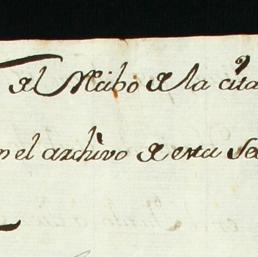 al Recibo de la cita
en el archivo de esta Se